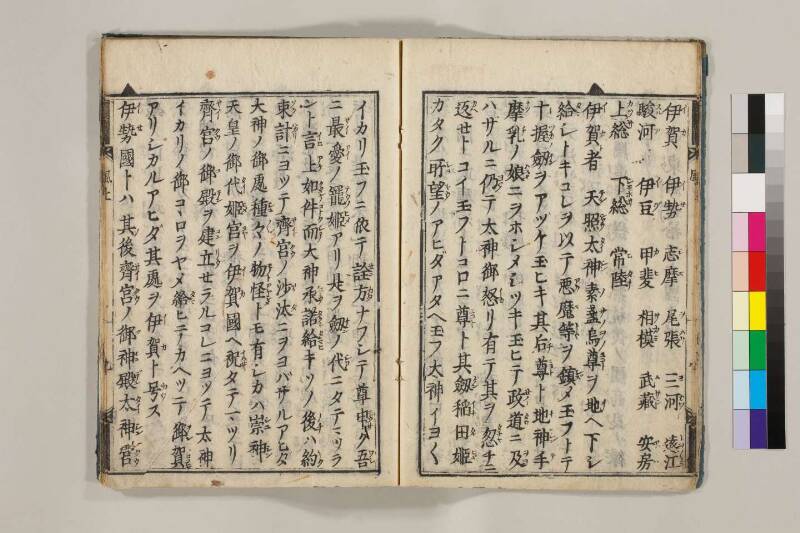 伊賀 伊勢 志摩 尾張 三河 遠江
駿河 伊豆 甲斐 相模 武蔵 安房
上総 下総 常陸
伊賀者 天照太神素盞烏尊ヲ地ヘ下シ
給シトキコレヲ以テ悪魔等ヲ鎮メ玉フトテ
十握ノ釼ヲアツケ玉ヒキ其后尊ト地神手
摩乳ノ娘ニヲホシメシツキ玉ヒテ政道ニ及
ハサルニ仍テ太神御怒リ有テ其ヲ忽チニ
返セトコイ玉フトコロニ尊ト其釼稲田姫
カタク所望ノアヒダアタヘ玉フ大神イヨク
イカリ玉フニ依テ詮方ナフシテ尊申ク吾
ニ最愛ノ寵姫アリ是ヲ釼ノ代ニタテマツラ
ント言上如件而大神承諾給キソノ後ハ約
束計ニヨッテ齊宮ノ沙汰ニヲヨバサルアヒダ
大神ノ御慮種々ノ物怪トモ有シカハ崇神
天皇ノ御代姫宮ヲ伊賀國ヘ祝タテマツリ
齊宮ノ御殿ヲ建立セラルコレニヨッテ太神
イカリノ御コヽロヲヤメ給ヒテカヘツテ御賀
アリシカルアヒダ其處ヲ伊賀ト号ス
伊勢國トハ其後齊宮ノ御神殿太神宮